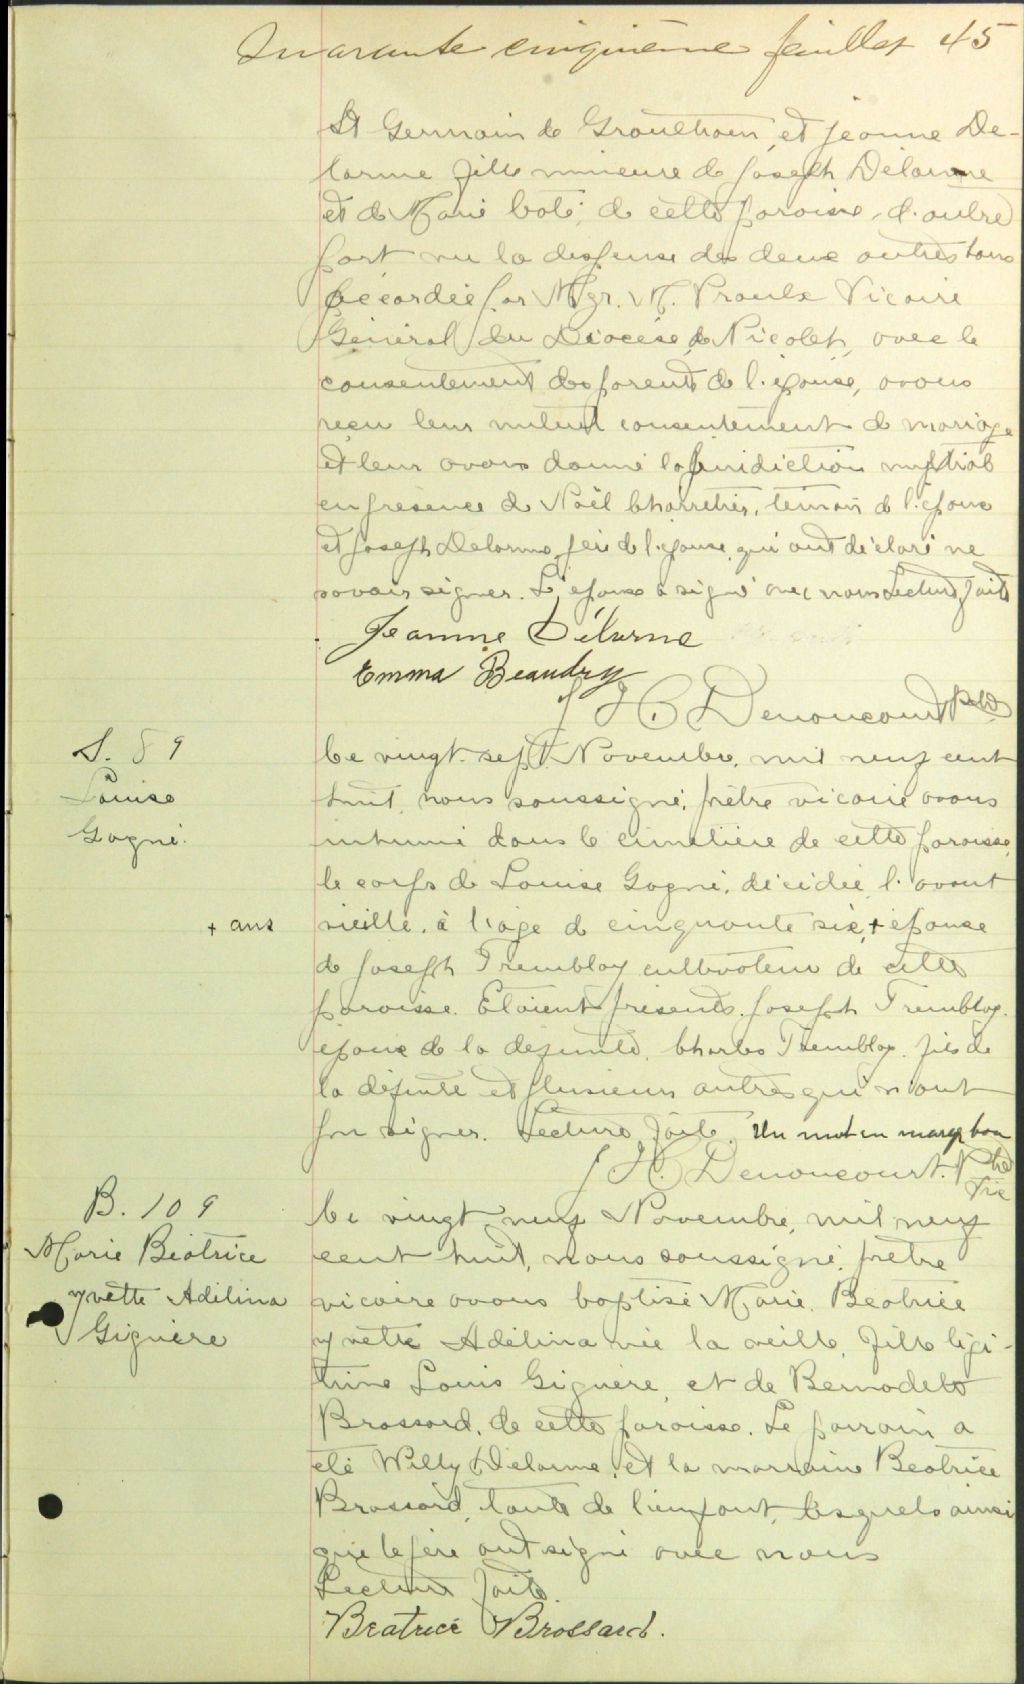 Quarante cinquième feuillet 45
St Germain de Grantham, et Jeanne De-
larme fille mineure de Joseph Delarme
et de Marie Coté, de cette paroisse, d'autre
part vu la dispense des deux autres bans
accordée par Mgr. M. Proulx Vicaire
Général du Diocèse de Nicolet, avec le
consentement des parents de l'épouse, avons
reçu leur mutuel consentement de mariage
et leur avons donné la bénédiction nuptiale
en présence de Noël Charretier, témoin de l'époux
et Joseph Delorme père de l'épouse qui ont déclaré ne
savoir signer. L'épouse a signé avec nous Lecture faite
Jeanne Délorme
Emma Beaudry
J H. Denoncourt Ptre
S. 89
Louise
Gagné.
Le vingt-sept Novembre, mil neuf cent
huit, nous soussigné, prêtre vicaire avons
inhumé dans le cimetière de cette paroisse,
le corps de Louise Gagné, décédée l'avant
+ ans
vieille, à l'age de cinquante six + épouse
de Joseph Tremblay cultivateur de cette
paroisse. Etaient présents, Joseph Tremblay,
époux de la defunte, Charles Tremblay, fils de
la défunte et plusieurs autres qui n'ont
pu signer. Lecture faite. Un mot en marge bon
J H. Denoncourt. Ptre
Vic
B. 109
Marie Béatrice
Yvette Adélina
Giguère
Le vingt neuf Novembre, mil neuf
cent huit, nous soussigné, prêtre
vicaire avons baptisé Marie Béatrice
Yvette Adélina née la vieille, fille légi-
time Louis Giguère, et de Bernadette
Brossard, de cette paroisse. Le parrain a
été Willy Delorme, et la marraine Béatrice
Brossard, tante de l'enfant, lesquels ainsi
que le père ont signé avec nous
Lecture faite.
Béatrice Brossard.